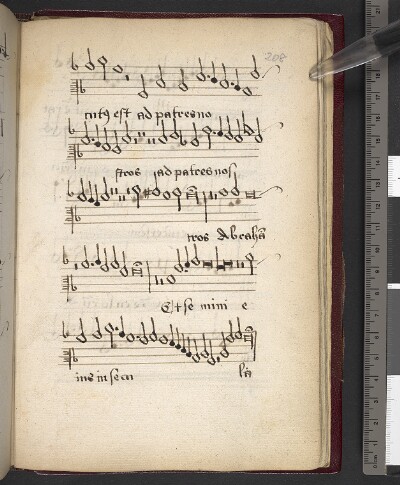 208
cutꝰ est ad patres no
stros ad patres nos
tros Abrahã
Et se mini e
ius in secu
lã